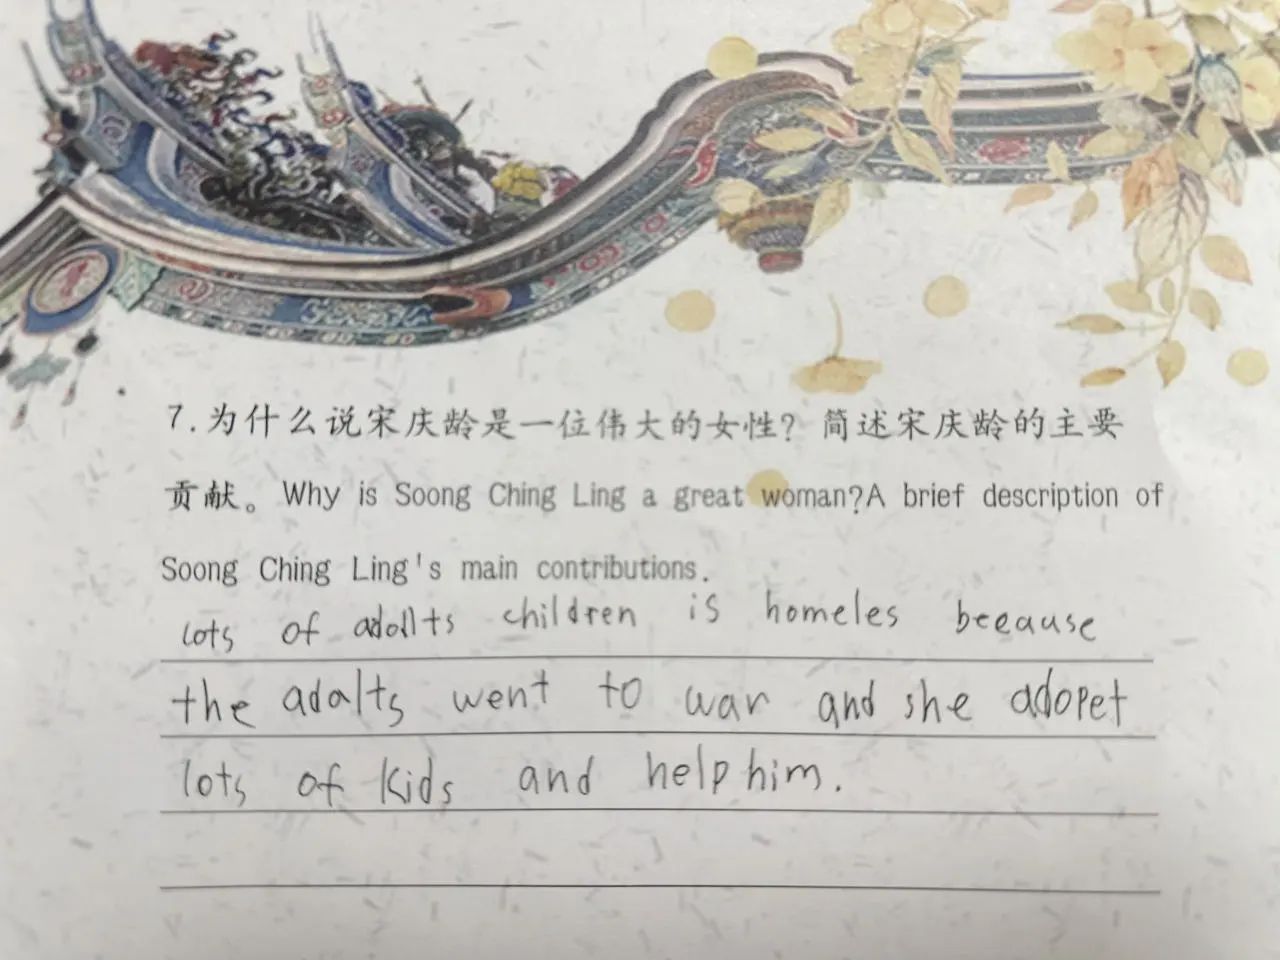 7.为什么说宋庆龄是一位伟大的女性？简述宋庆龄的主要
贡献。Why is Soong Ching Ling a great woman?A brief description of
Soong Ching Ling's main contributions.
lots of adollts children is homeles beeause
the adalts went to war and she adopet
lots of kids and help him.